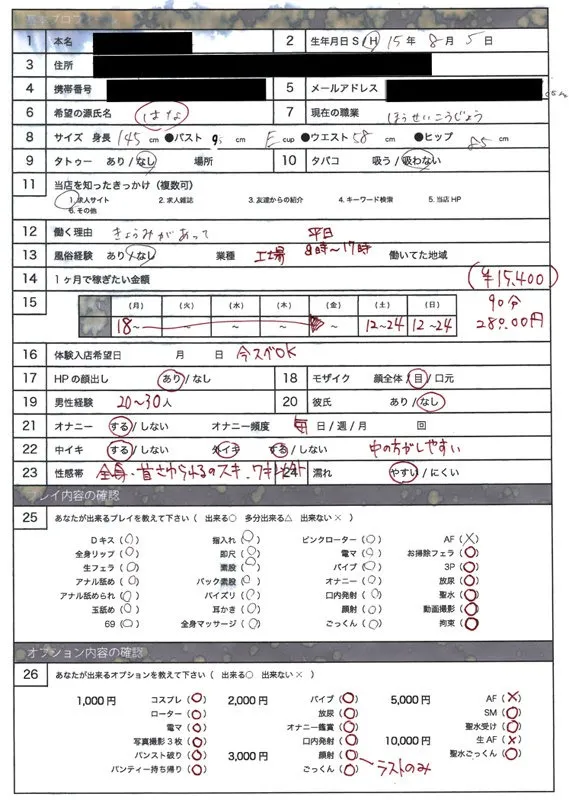 1 本名 2 生年月日 S / H 15年 8月 5日
3 住所
4 携帯番号 5 メールアドレス
6 希望の源氏名 はな 7 現在の職業 ほうせいこうじょう
8 サイズ 身長 145 cm ●バスト cm E cup ●ウエスト 58 cm ●ヒップ 85 cm
9 タトゥー あり / なし 場所 10 タバコ 吸う / 吸わない
11 当店を知ったきっかけ(複数可)
1. 求人サイト 2. 求人雑誌 3. 友達からの紹介 4. キーワード検索 5. 当店HP
6. その他
12 働く理由 きょうみがあって 平日
13 風俗経験 あり / なし 業種 工場 8時〜17時 働いてた地域
14 1ヶ月で稼ぎたい金額 (¥15,400)
15 (月) (火) (水) (木) (金) (土) (日) 90分
18〜 〜 〜 〜 〜 12〜24 12〜24 28000円
16 体験入店希望日 月 日 今スベOK
17 HPの顔出し あり / なし 18 モザイク 顔全体 / 目 / 口元
19 男性経験 20〜30人 20 彼氏 あり / なし
21 オナニー する / しない オナニー頻度 毎 日 / 週 / 月 回
22 中イキ する / しない 外イキ する / しない 中の方がしやすい
23 性感帯 全身・首さわられるのスキ、ワキ 24 濡れ やすい / にくい
プレイ内容の確認
25 あなたが出来るプレイを教えて下さい ( 出来る○ 多分出来る△ 出来ない× )
Dキス (○) 指入れ (○) ピンクローター (○) AF (×)
全身リップ (○) 即尺 (○) 電マ (○) お掃除フェラ (○)
生フェラ (○) 素股 (○) バイブ (○) 3P (○)
アナル舐め (○) バック素股 (○) オナニー (○) 放尿 (○)
アナル舐められ (○) パイズリ (○) 口内発射 (○) 聖水 (○)
玉舐め (○) 耳かき (○) 顔射 (○) 動画撮影 (○)
69 (○) 全身マッサージ (○) ごっくん (○) 拘束 (○)
オプション内容の確認
26 あなたが出来るオプションを教えて下さい ( 出来る○ 出来ない× )
1,000円 コスプレ (○) 2,000円 バイブ (○) 5,000円 AF (×)
ローター (○) 放尿 (○) SM (○)
電マ (○) オナニー鑑賞 (○) 聖水受け (○)
写真撮影3枚 (○) 口内発射 (○) 10,000円 生AF (×)
パンスト破り (○) 3,000円 顔射 (○) 聖水ごっくん (○)
パンティー持ち帰り (○) ごっくん (○) ラストのみ